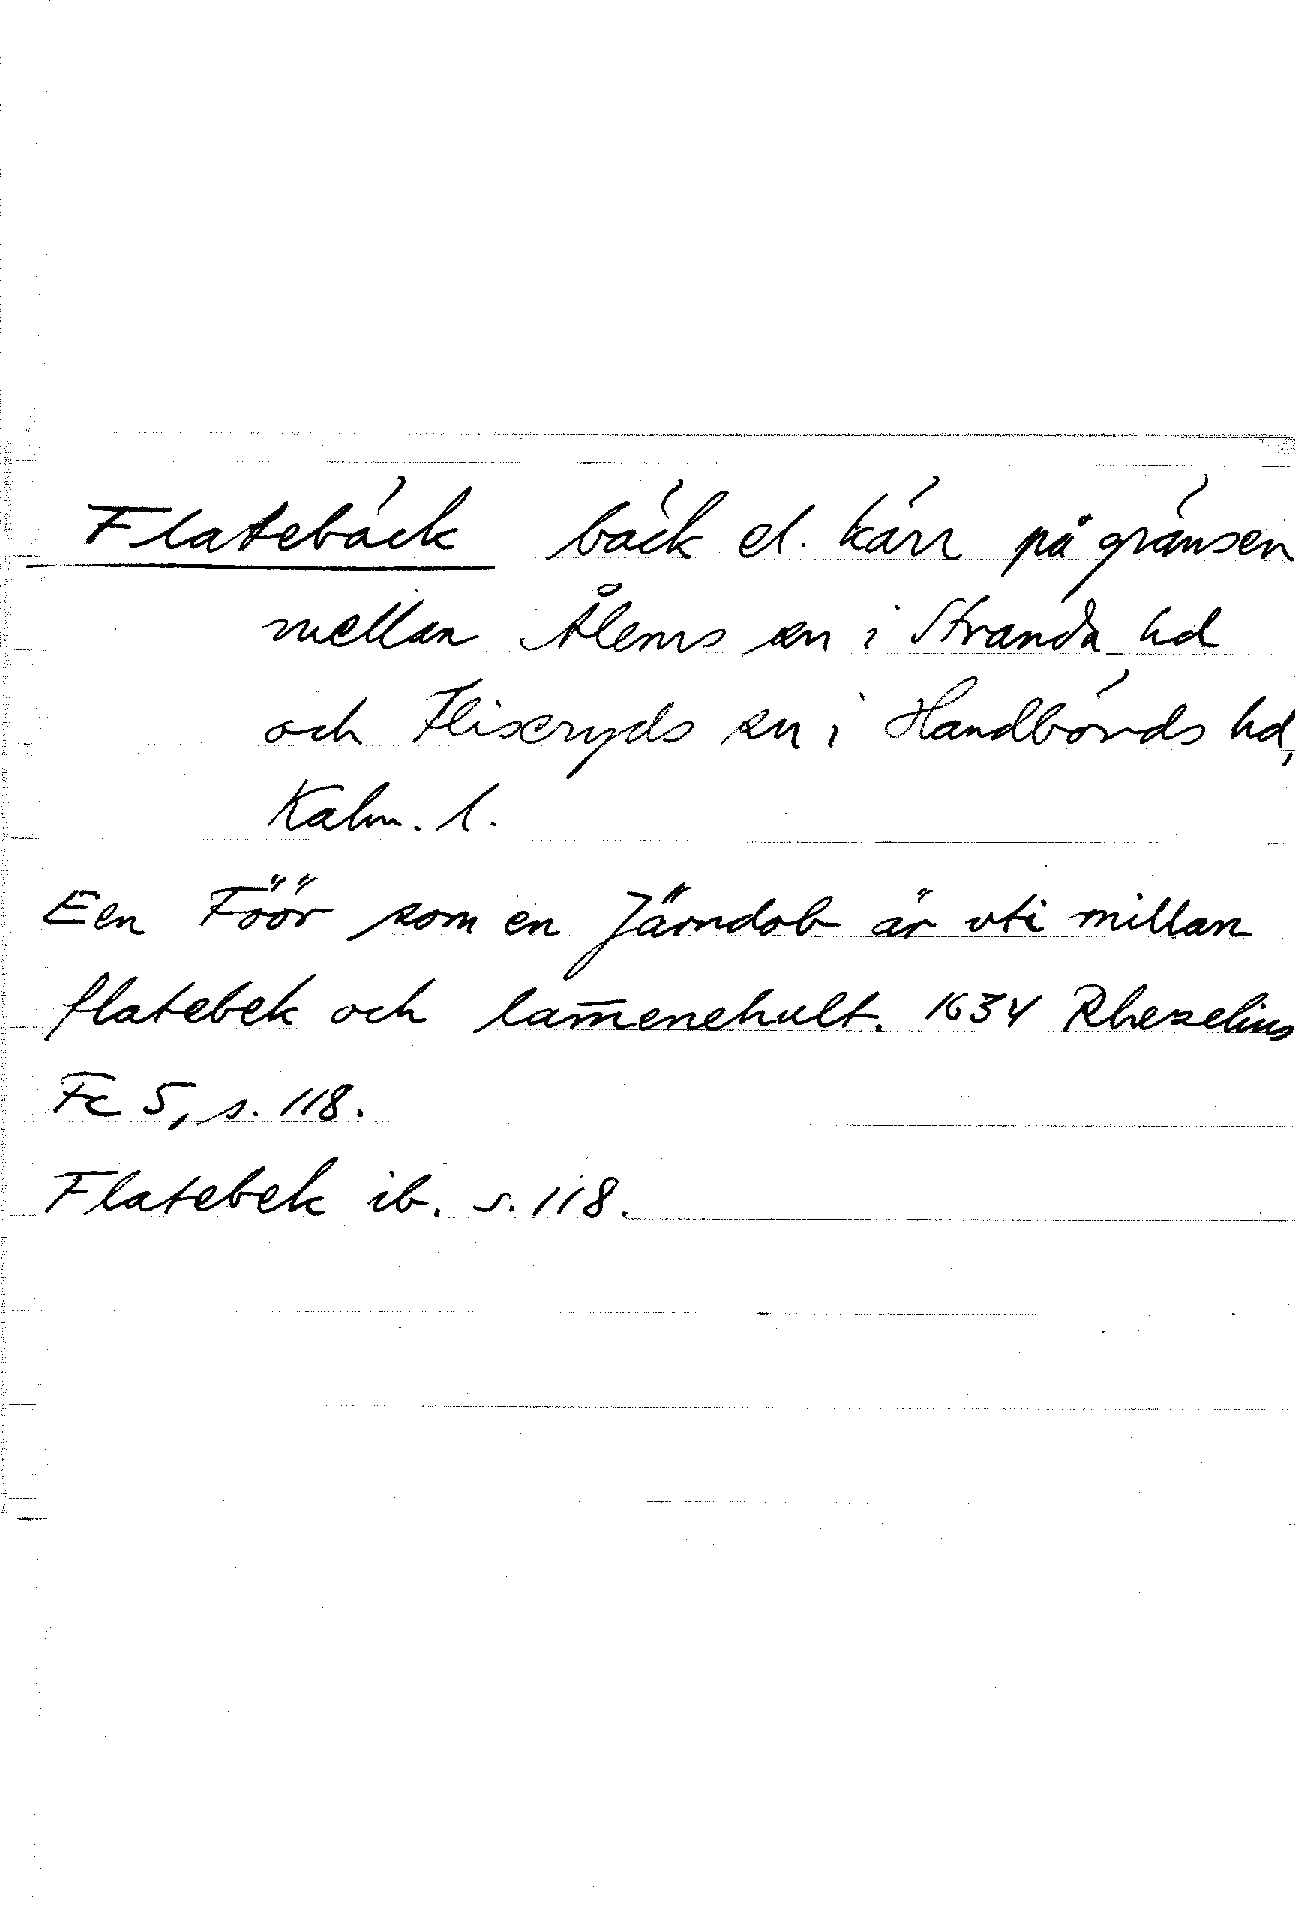 Flatebäck bäck el. kärr på gränsen
mellan Ålems sn i Stranda hd
och Fliseryds sn i Handbörds hd,
Kalm. l.
Een Föör som en Järndob är vti millan
flatebek och lam̅enehult. 1634 Rhezelius
Fc 5, s. 118.
Flatebek ib. s. 118.